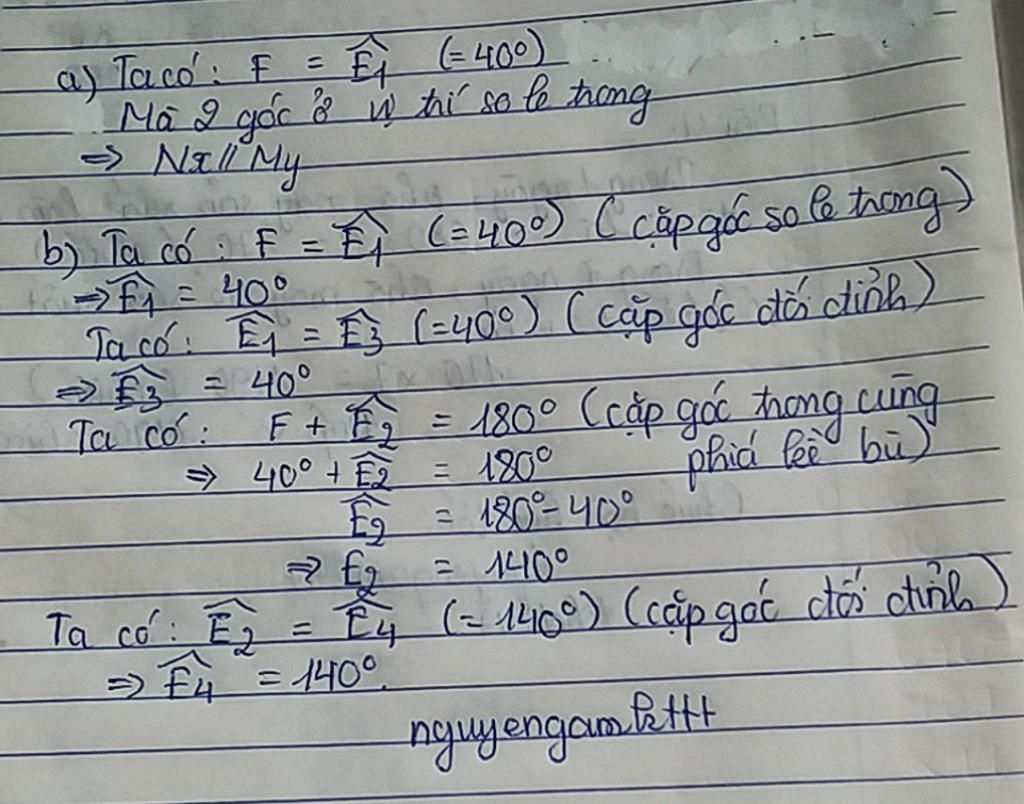 a) Ta có: F = Ê1 (=40°)
Mà 2 góc ở vị trí so le trong
⇒ Nx // My
b) Ta có: F = Ê1 (=40°) (cặp góc so le trong)
⇒ Ê1 = 40°
Ta có: Ê1 = Ê3 (=40°) (cặp góc đối đỉnh)
⇒ Ê3 = 40°
Ta có: F + Ê2 = 180° (cặp góc trong cùng
⇒ 40° + Ê2 = 180° phiá kề bù)
Ê2 = 180° - 40°
⇒ E2 = 140°
Ta có: Ê2 = Ê4 (=140°) (cặp góc đối đỉnh)
⇒ Ê4 = 140°.